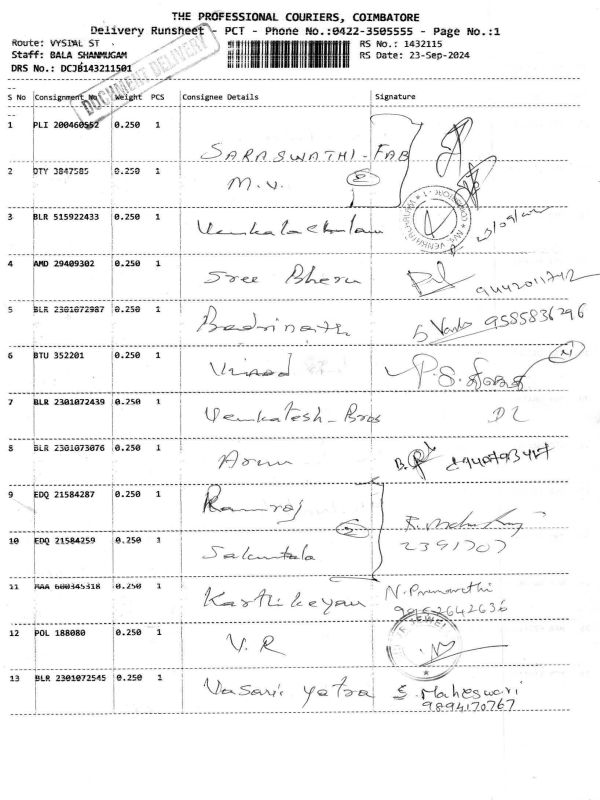 THE PROFESSIONAL COURIERS, COIMBATORE
Delivery Runsheet - PCT - Phone No.:0422-3505555 - Page No.:1
Route: VYSIAL ST RS No.: 1432115
Staff: BALA SHANMUGAM RS Date: 23-Sep-2024
DRS No.: DCJB143211501
DOCUMENT DELIVERY
S No Consignment No Weight PCS Consignee Details Signature
1 PLI 200460552 0.250 1 SARASWATHI-FAB
2 DTY 3847585 0.250 1 M.V.
3 BLR 515922433 0.250 1 Venkatachalam
4 AMD 29409302 0.250 1 Sree Bheru 9442011742
5 BLR 2301072987 0.250 1 Badrinath 9585836296
6 BTU 352201 0.250 1 Vinod P.S.
7 BLR 2301072439 0.250 1 Venkatesh-Bros DL
8 BLR 2301073076 0.250 1 Arun
9 EDQ 21584287 0.250 1 Ramraj
10 EDQ 21584259 0.250 1 Sakuntala 2391707
11 MAA 600345318 0.250 1 Karthikeyan N.
12 POL 188080 0.250 1 V.R
13 BLR 2301072545 0.250 1 Vasari yatra S. Maheswari
9894170767